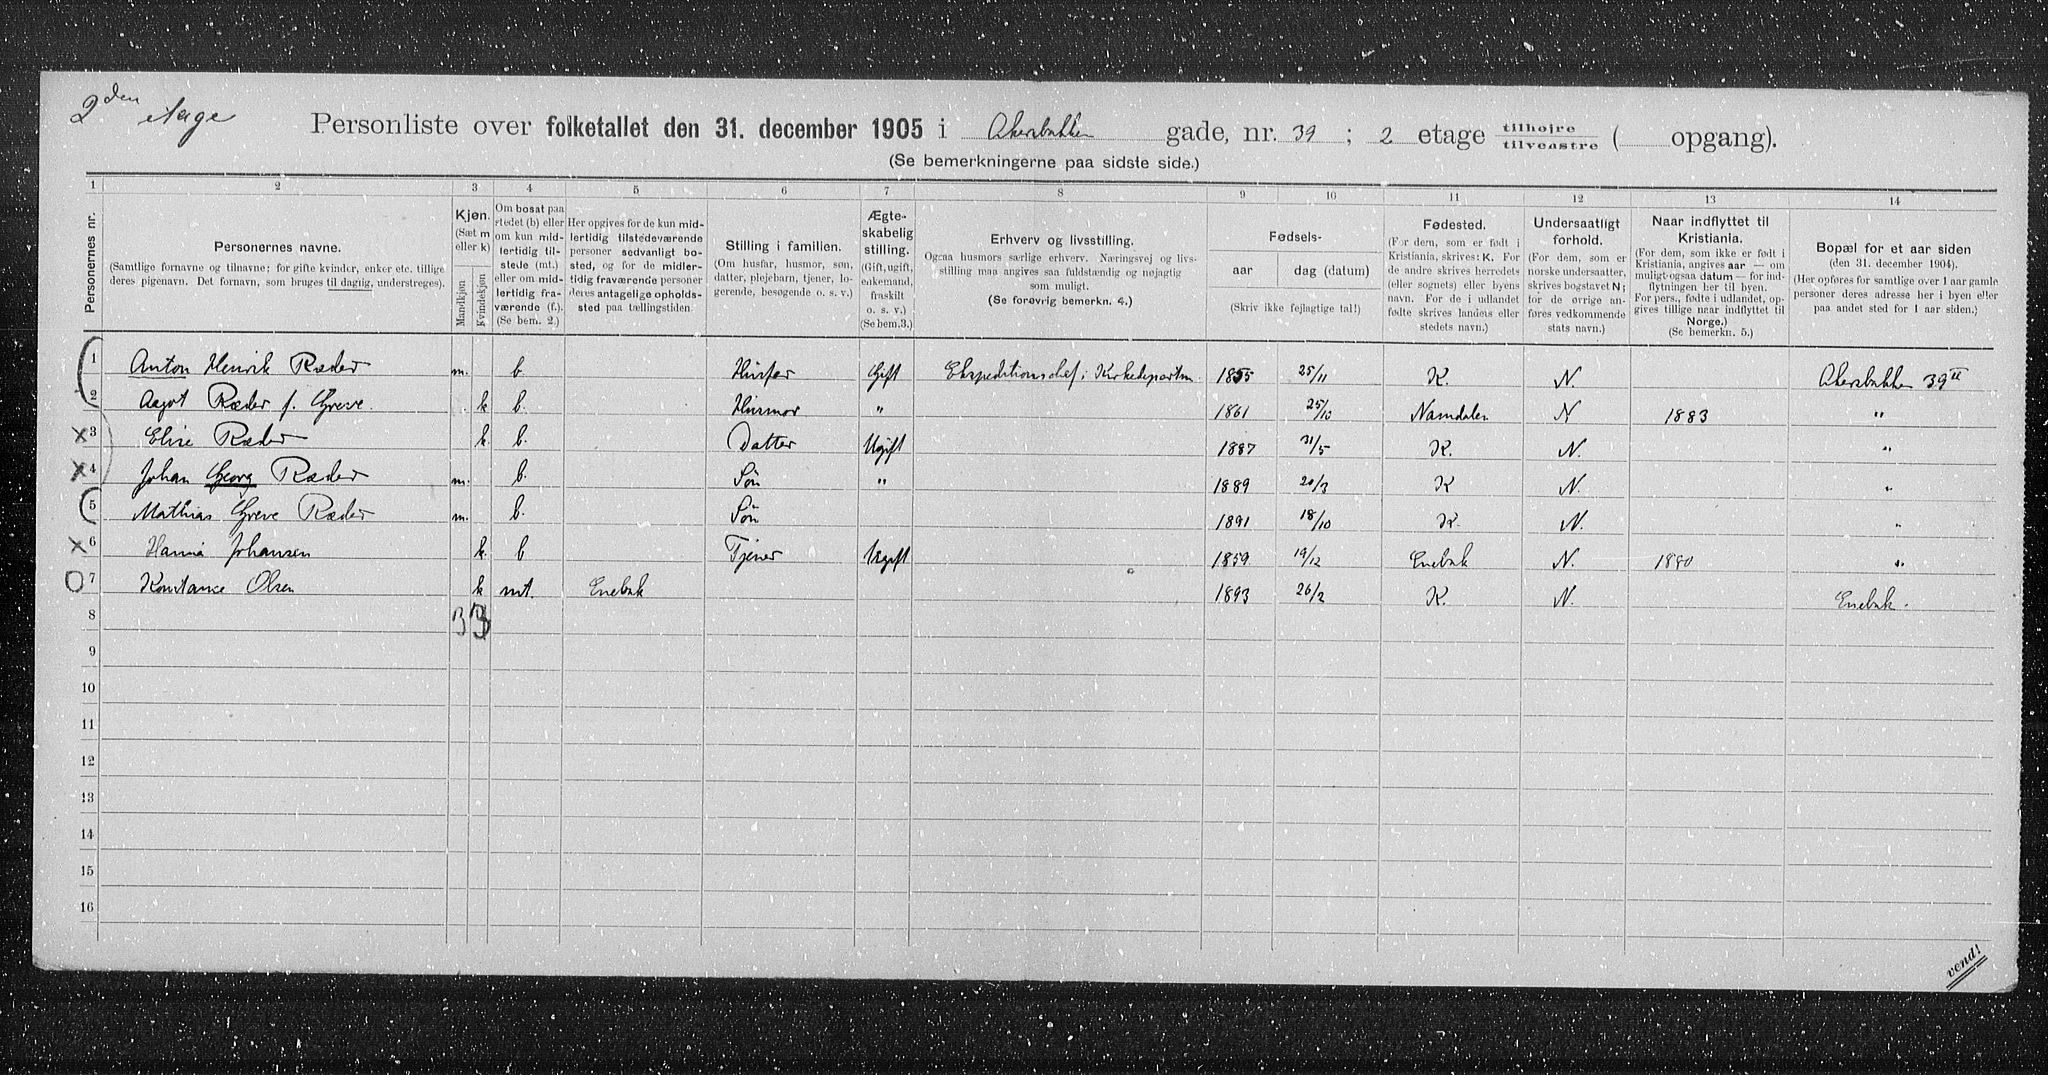 2den etage
Personliste over folketallet den 31. december 1905 i Akersbakken gade, nr. 39 ; 2 etage tilhøjre tilvenstre ( opgang).
(Se bemerkningerne paa sidste side.)
1 2 3 4 5 6 7 8 9 10 11 12 13 14
Personernes nr.
Personernes navne.
(Samtlige fornavne og tilnavne; for gifte kvinder, enker etc. tillige
deres pigenavn. Det fornavn, som bruges til daglig, understreges).
Kjøn.
(Sæt m
eller k)
Mandkjøn
Kvindekjøn
Om bosat paa
stedet (b) eller
om kun midlertidig
tilstede (mt.)
eller om midlertidig
fraværende (f.).
(Se bem. 2.)
Her opgives for de kun midlertidig
tilstedeværende
personer sedvanlig bosted,
og for de midlertidig
fraværende personer
deres antagelige opholdssted
paa tællingstiden.
Stilling i familien.
(Om husfar, husmor, søn,
datter, plejebarn, tjener, logerende,
besøgende o. s. v.)
Ægteskabelig
stilling.
(Gift, ugift,
enkemand,
fraskilt
o. s. v.)
(Se bem.3.)
Erhverv og livsstilling.
Ogsaa husmors særlige erhverv. Næringsvej og livsstilling
maa angives saa fuldstændig og nøjagtig
som muligt.
(Se forøvrig bemerkn. 4.)
Fødsels-
aar
dag (datum)
(Skriv ikke fejlagtige tal!)
Fødested.
(For dem, som er født i
Kristiania, skrives: K. For
de andre skrives herredets
(eller sognets) eller byens
navn. For de i udlandet
fødte skrives landets eller
stedets navn.)
Undersaatligt
forhold.
(For dem, som er
norske undersaatter,
skrives bogstavet N;
for de øvrige anføres
vedkommende
stats navn.)
Naar indflyttet til
Kristiania.
(For dem, som ikke er født i
Kristiania, angives aar — om
muligt ogsaa datum — for indflytningen
her til byen.
For pers., fødte i udlandet, opgives
tillige naar indflyttet til
Norge.)
(Se bemerkn. 5.)
Bopæl for et aar siden
(den 31. december 1904).
(Her opføres for samtlige over 1 aar gamle
personer deres adresse her i byen eller
paa andet sted for 1 aar siden.)
1 Anton Henrik Ræder m. b. Husfar Gift Ekspeditionschef i Kirkedepartm. 1855 25/11 K. N. Akersbakken 39 II
2 Aagot Ræder f. Greve. k b. Husmor " 1861 25/10 Namdalen N 1883 "
x 3 Elise Ræder k. b. Datter Ugift 1887 31/5 K. N. "
x 4 Johan Georg Ræder m. b. Søn " 1889 20/3 K N. "
5 Mathias Greve Ræder m. b. Søn 1891 18/10 K. N. "
x 6 Hanna Johansen k. b Tjener Ugift 1859 19/12 Enebak N. 1880 "
O 7 Konstance Olsen k mt. Enebak 1893 26/2 K. N. Enebak.
8 3 3
9
10
11
12
13
14
15
16
vend!